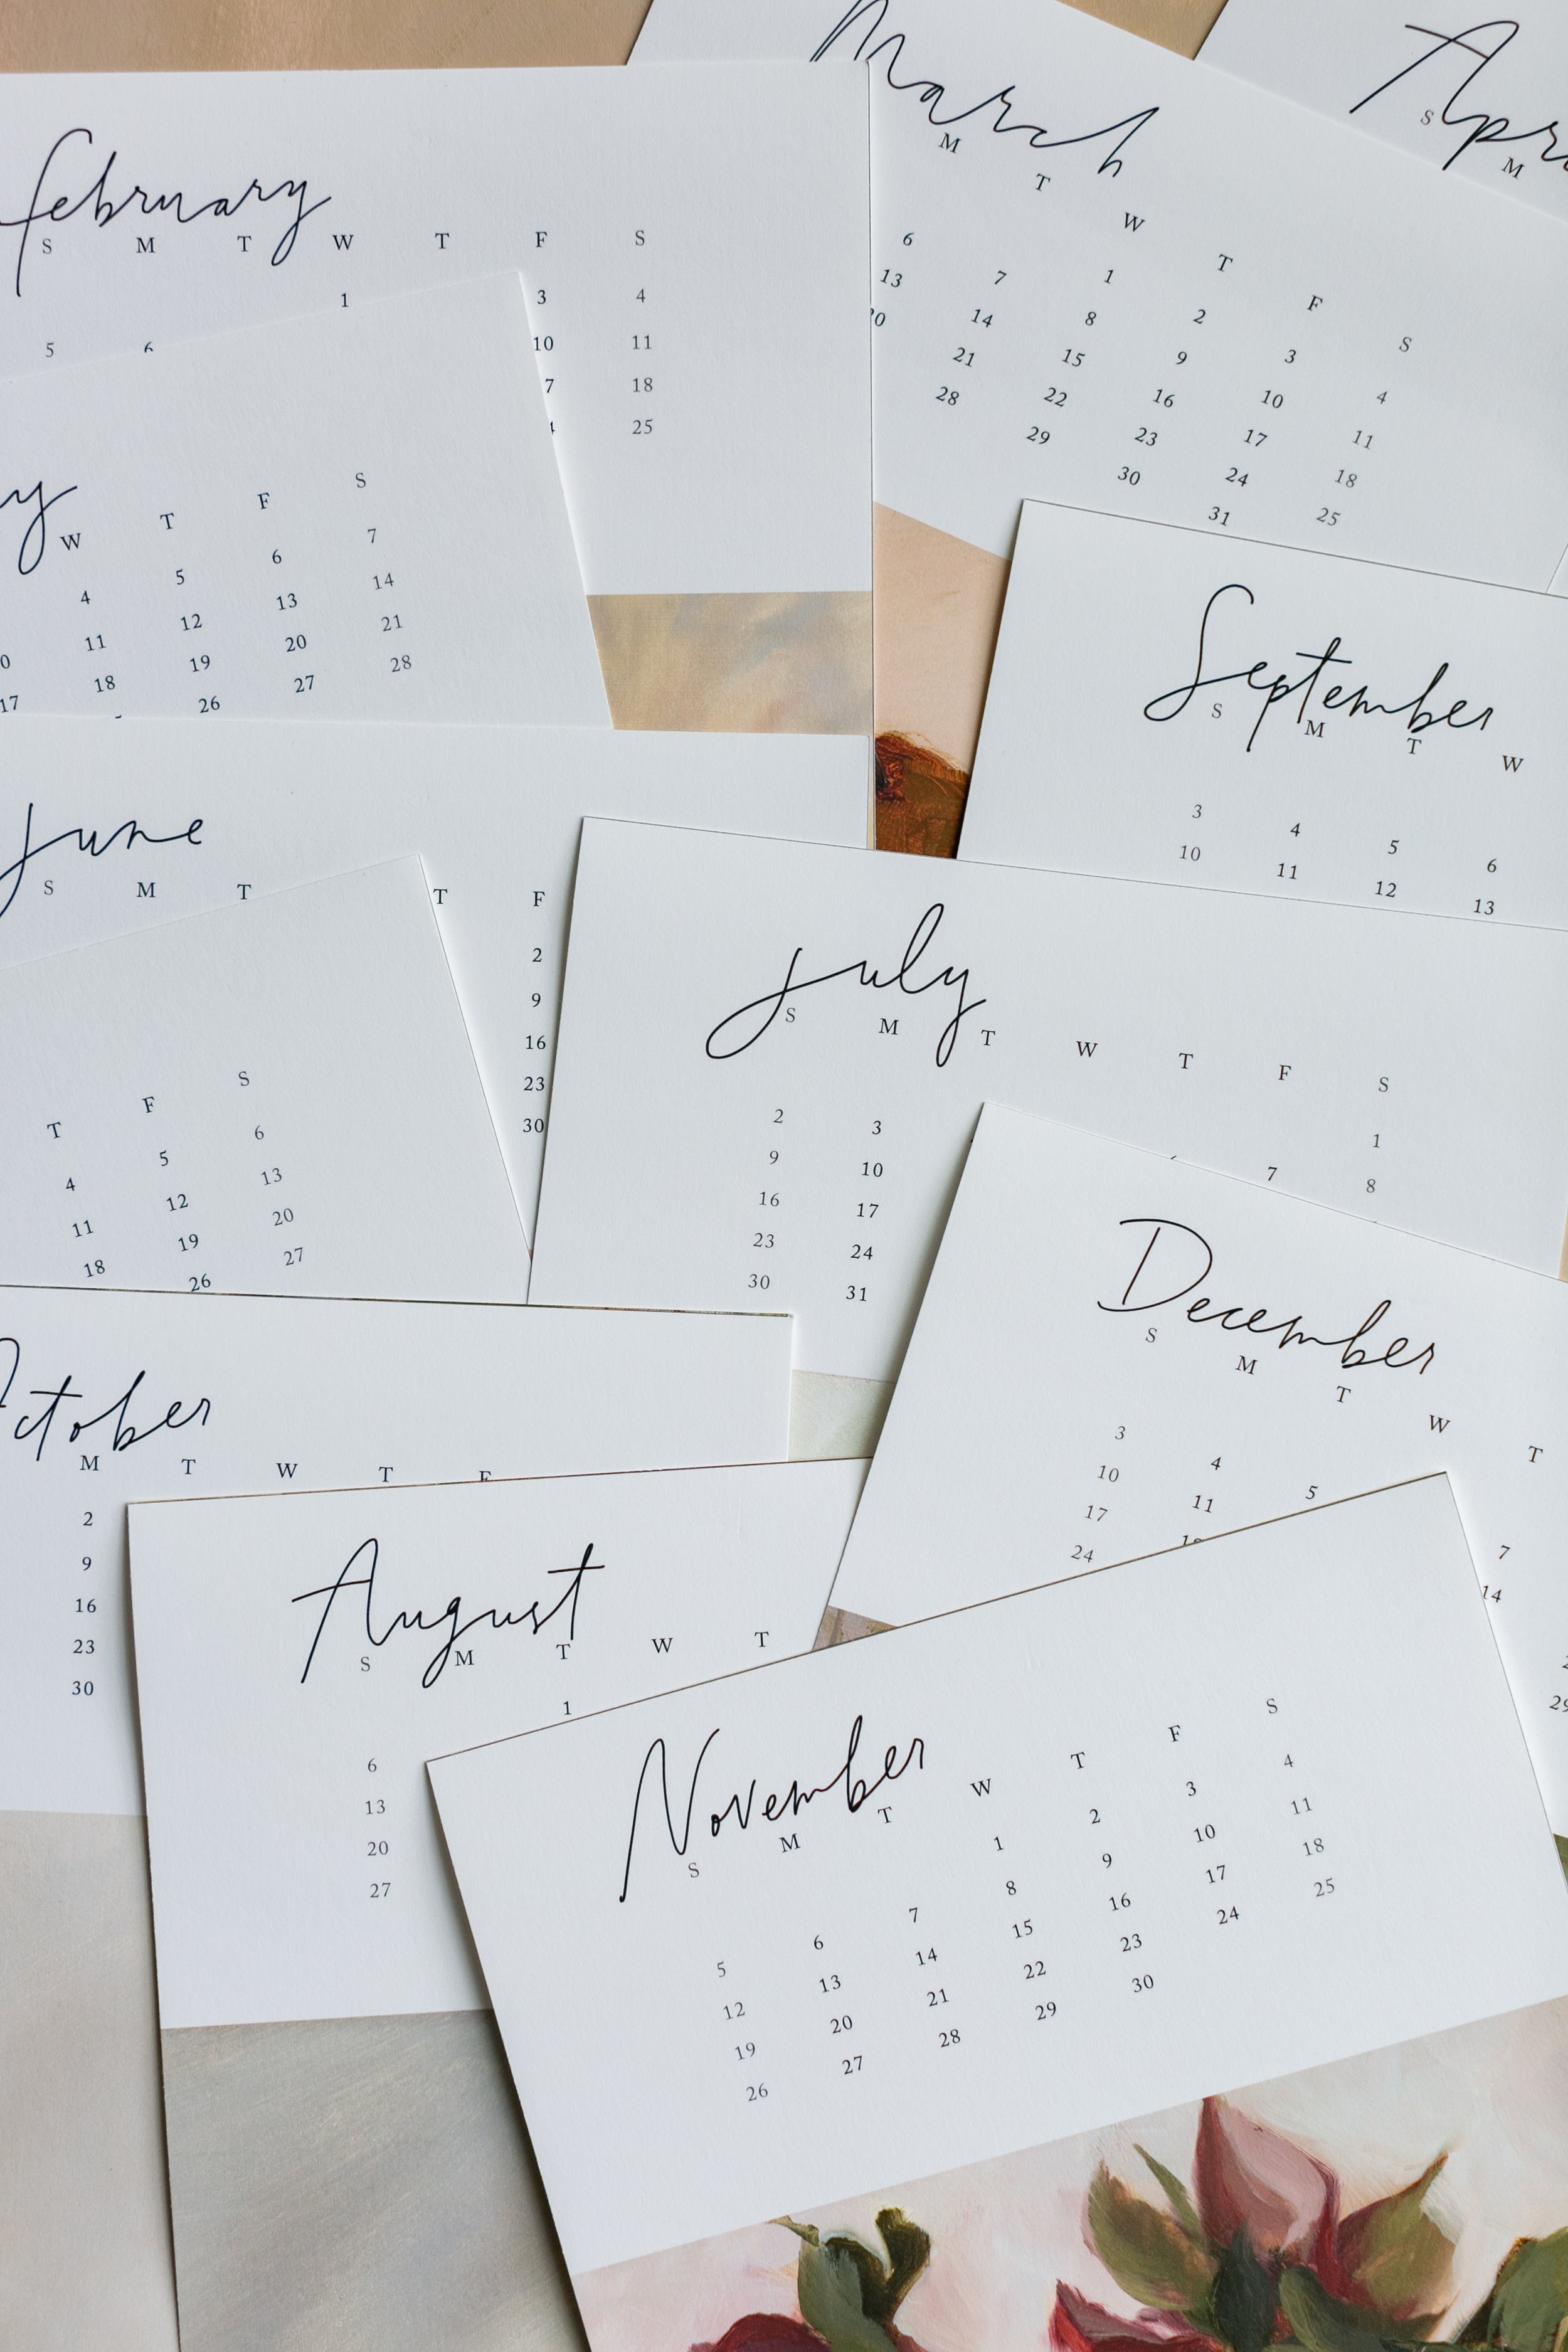 February
S M T W T F S
1 3 4
5 10 11
18
25
March
M T W T F S
1 2 3 4
6 7 8 9 10 11
13 14 15 16 17 18
21 22 23 24 25
28 29 30 31
S M
W T F S
4 5 6 7
11 12 13 14
18 19 20 21
17 26 27 28
September
S M T W
3 4 5 6
10 11 12 13
June
S M T T F
2
9
16
23
30
July
S M T W T F S
1
2 3 7 8
9 10
16 17
23 24
30 31
T F S
4 5 6
11 12 13
18 19 20
26 27
December
S M T W T
3 4 5 7
10 11 14
17
24
October
M T W T F
2
9
16
23
30
August
S M T W T
1
6
13
20
27
November
S M T W T F S
1 2 3 4
5 6 7 8 9 10 11
12 13 14 15 16 17 18
19 20 21 22 23 24 25
26 27 28 29 30